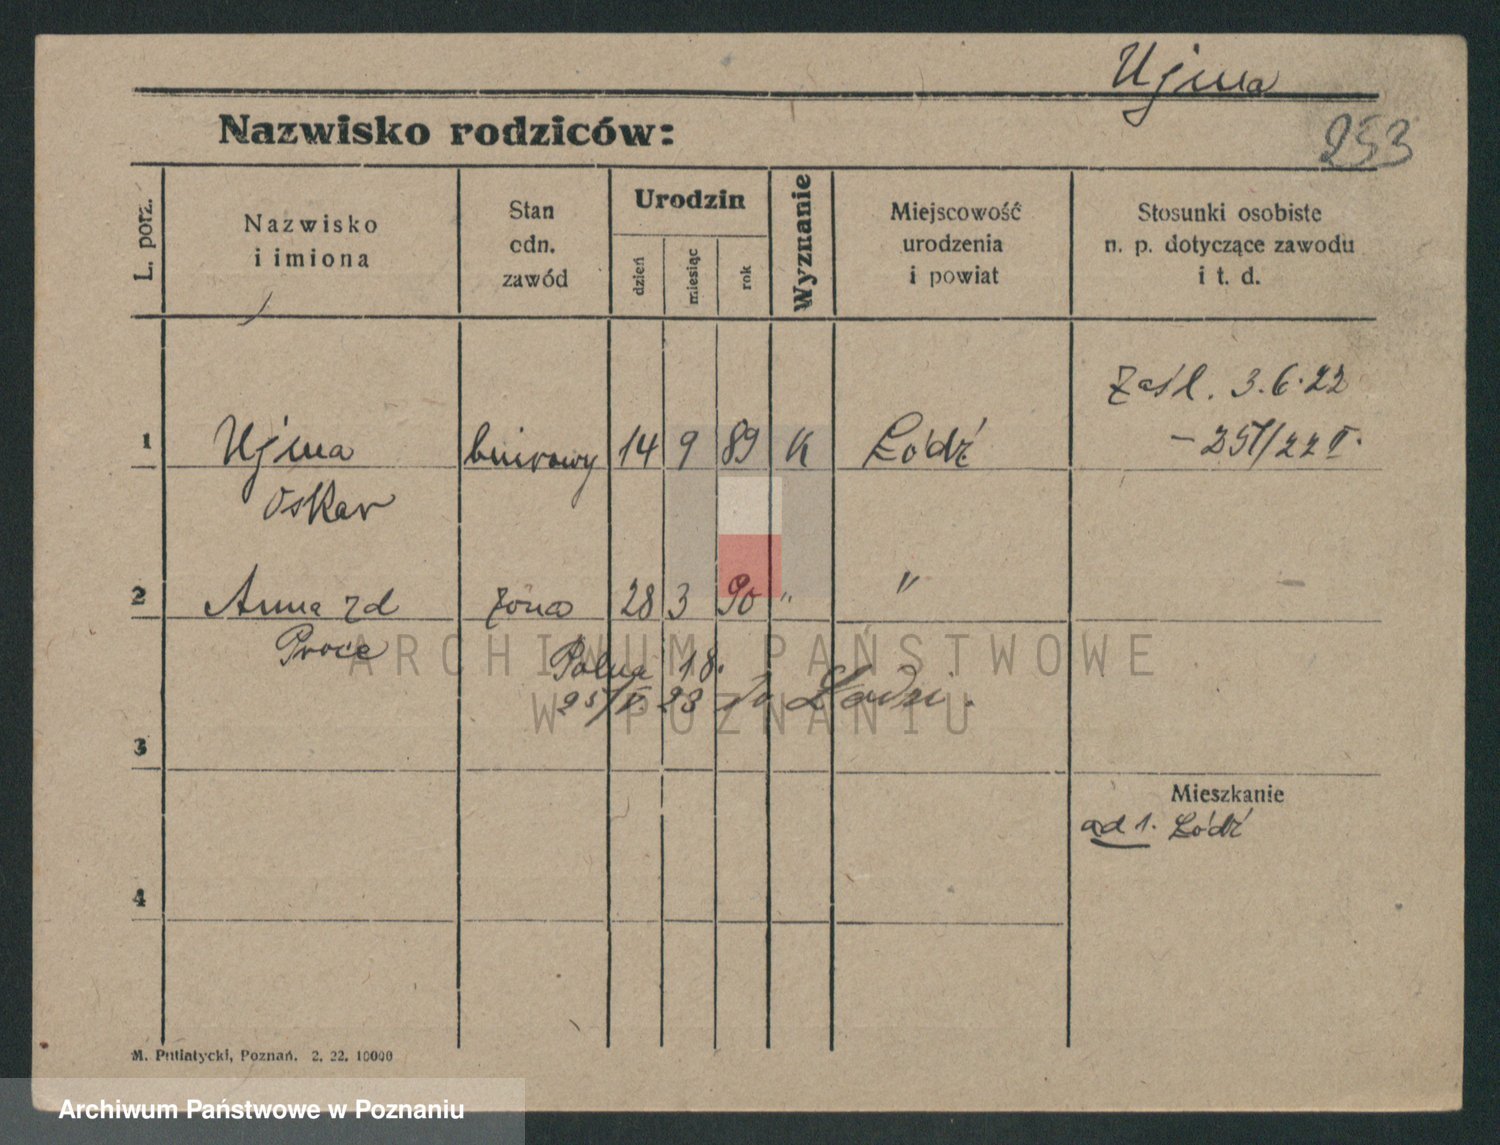 Ujma
253
Nazwisko rodziców:
L. porz.
Nazwisko
i imiona
Stan
cdn.
zawód
Urodzin
dzień
miesiąc
rok
Wyznanie
Miejscowość
urodzenia
i powiat
Stosunki osobiste
n. p. dotyczące zawodu
i t. d.
1 Ujma biurowy 14 9 89 K Łódź
Oskar
Zaśl. 3.6.22
2 Anna zd żona 28 3 90 " "
Proce
Polna 18.
25/V. 23 do Łodzi.
3
Mieszkanie
ad 1. Łódź
4
M. Putiatycki, Poznań. 2. 22. 10000
ARCHIWUM PAŃSTWOWE
W POZNANIU
Archiwum Państwowe w Poznaniu